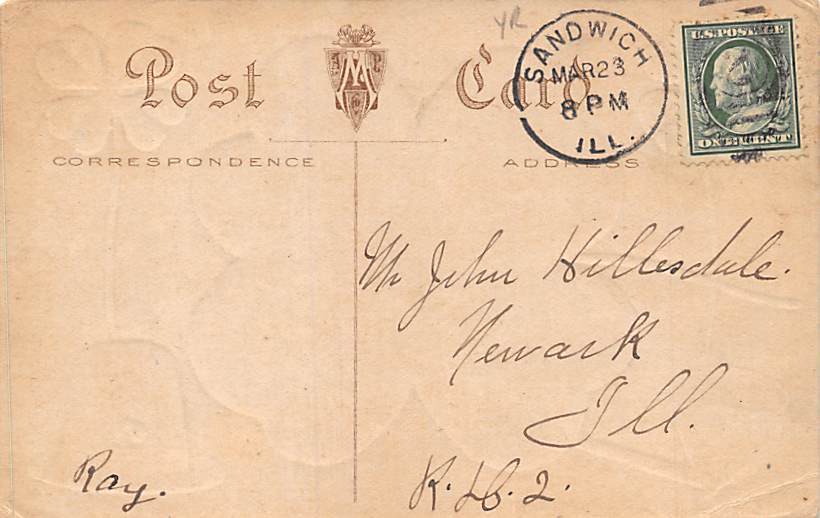 YR
Post Card
CORRESPONDENCE
ADDRESS
SANDWICH
MAR 23
8 PM
ILL.
U.S. POSTAGE
ONE CENT
Mr John Hillesdale.
Newark
Ill.
R. D. 2.
Ray.